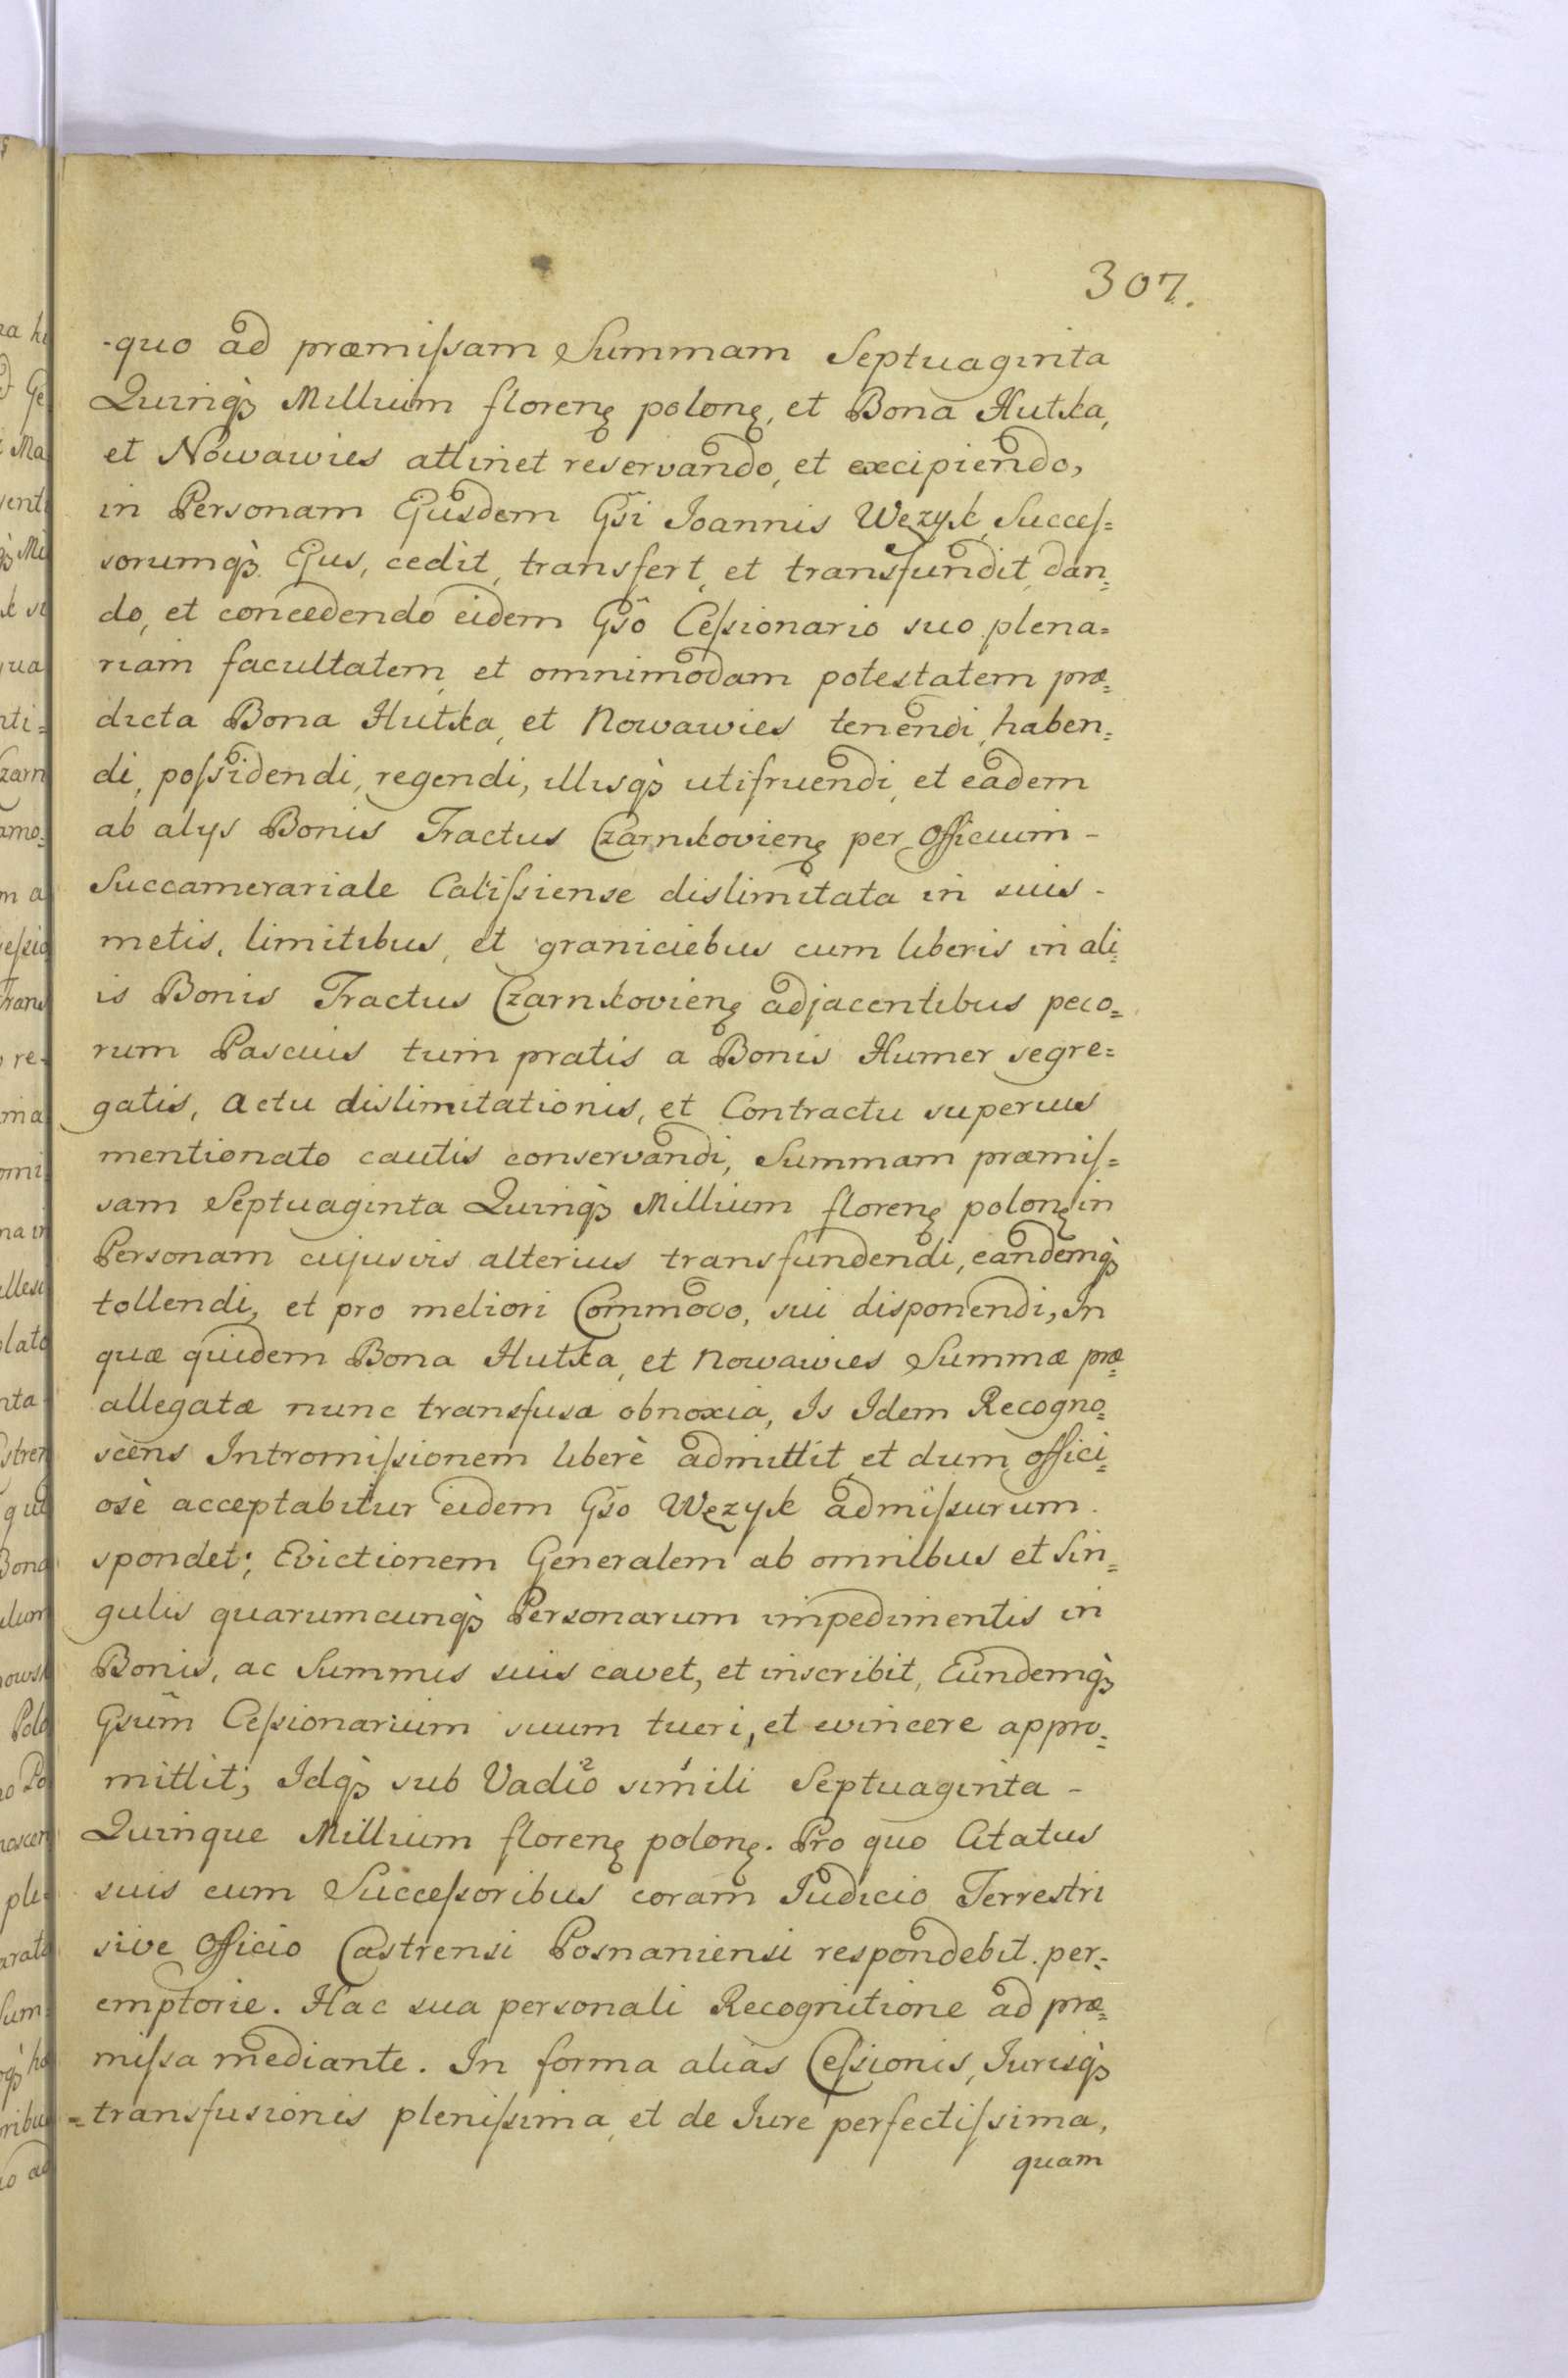 307.
-quo ad præmiſsam Summam Septuaginta
Quinqꝫ Millium florenꝫ polonꝫ, et Bona Hutka,
et Nowawies attinet reservando, et excipiendo,
in Personam Ejusdem Gsi Joannis Węzyk, Succeſ=
sorumqꝫ Ejus, cedit, transfert, et transfundit, dan=
do, et concedendo eidem Gso Ceſsionario suo plena=
riam facultatem, et omnimodam potestatem præ=
dicta Bona Hutka, et Nowawies tenendi, haben=
di, poſsidendi, regendi, illisqꝫ utifruendi, et eadem
ab alys Bonis Tractus Czarnkovienꝫ per Officium -
Succamerariale Caliſsiense dislimitata in suis -
metis, limitibus, et graniciebus cum liberis in ali=
is Bonis Tractus Czarnkovienꝫ adjacentibus peco=
rum Pascuis tum pratis a Bonis Humer segre=
gatis, Actu dislimitationis, et Contractu superius
mentionato cautis conservandi, Summam præmiſ=
sam Septuaginta Quinqꝫ Millium florenꝫ polonꝫ in
Personam cujusvis alterius transfundendi, eandemqꝫ
tollendi, et pro meliori Commodo, sui disponendi, In
quæ quidem Bona Hutka, et Nowawies Summæ præ=
allegatæ nunc transfusæ obnoxia, Is Idem Recogno=
scens Intromiſsionem liberè admittit, et dum offici=
osè acceptabitur eidem Gso Węzyk admiſsurum
spondet; Evictionem Generalem ab omnibus et Sin=
gulis quarumcunqꝫ Personarum impedimentis in
Bonis, ac Summis suis cavet, et inscribit, Eundemqꝫ
Gsum Ceſsionarium suum tueri, et evincere appro=
mittit; Idqꝫ sub Vadio² simili¹ Septuaginta -
Quinque Millium florenꝫ polonꝫ. Pro quo Citatus
suis cum Succeſsoribus coram Judicio Terrestri
sive Officio Castrensi Posnaniensi respondebit per=
emptorie. Hac sua personali Recognitione ad præ=
miſsa mediante. In forma alias Ceſsionis, Jurisqꝫ
=transfusionis pleniſsima, et de Jure perfectiſsima,
quam